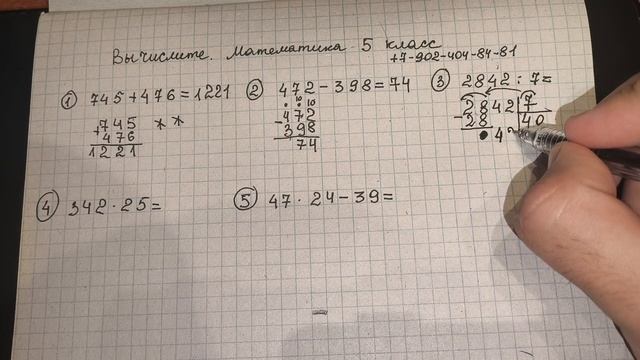 Вычислите. Математика 5 класс
+7-902-404-84-81
① 745+476=1221
745
+476
1221
* *
② 472-398=74
472
-398
74
③ 2842:7=
2842 7
-28 40
42
④ 342·25=
⑤ 47·24-39=